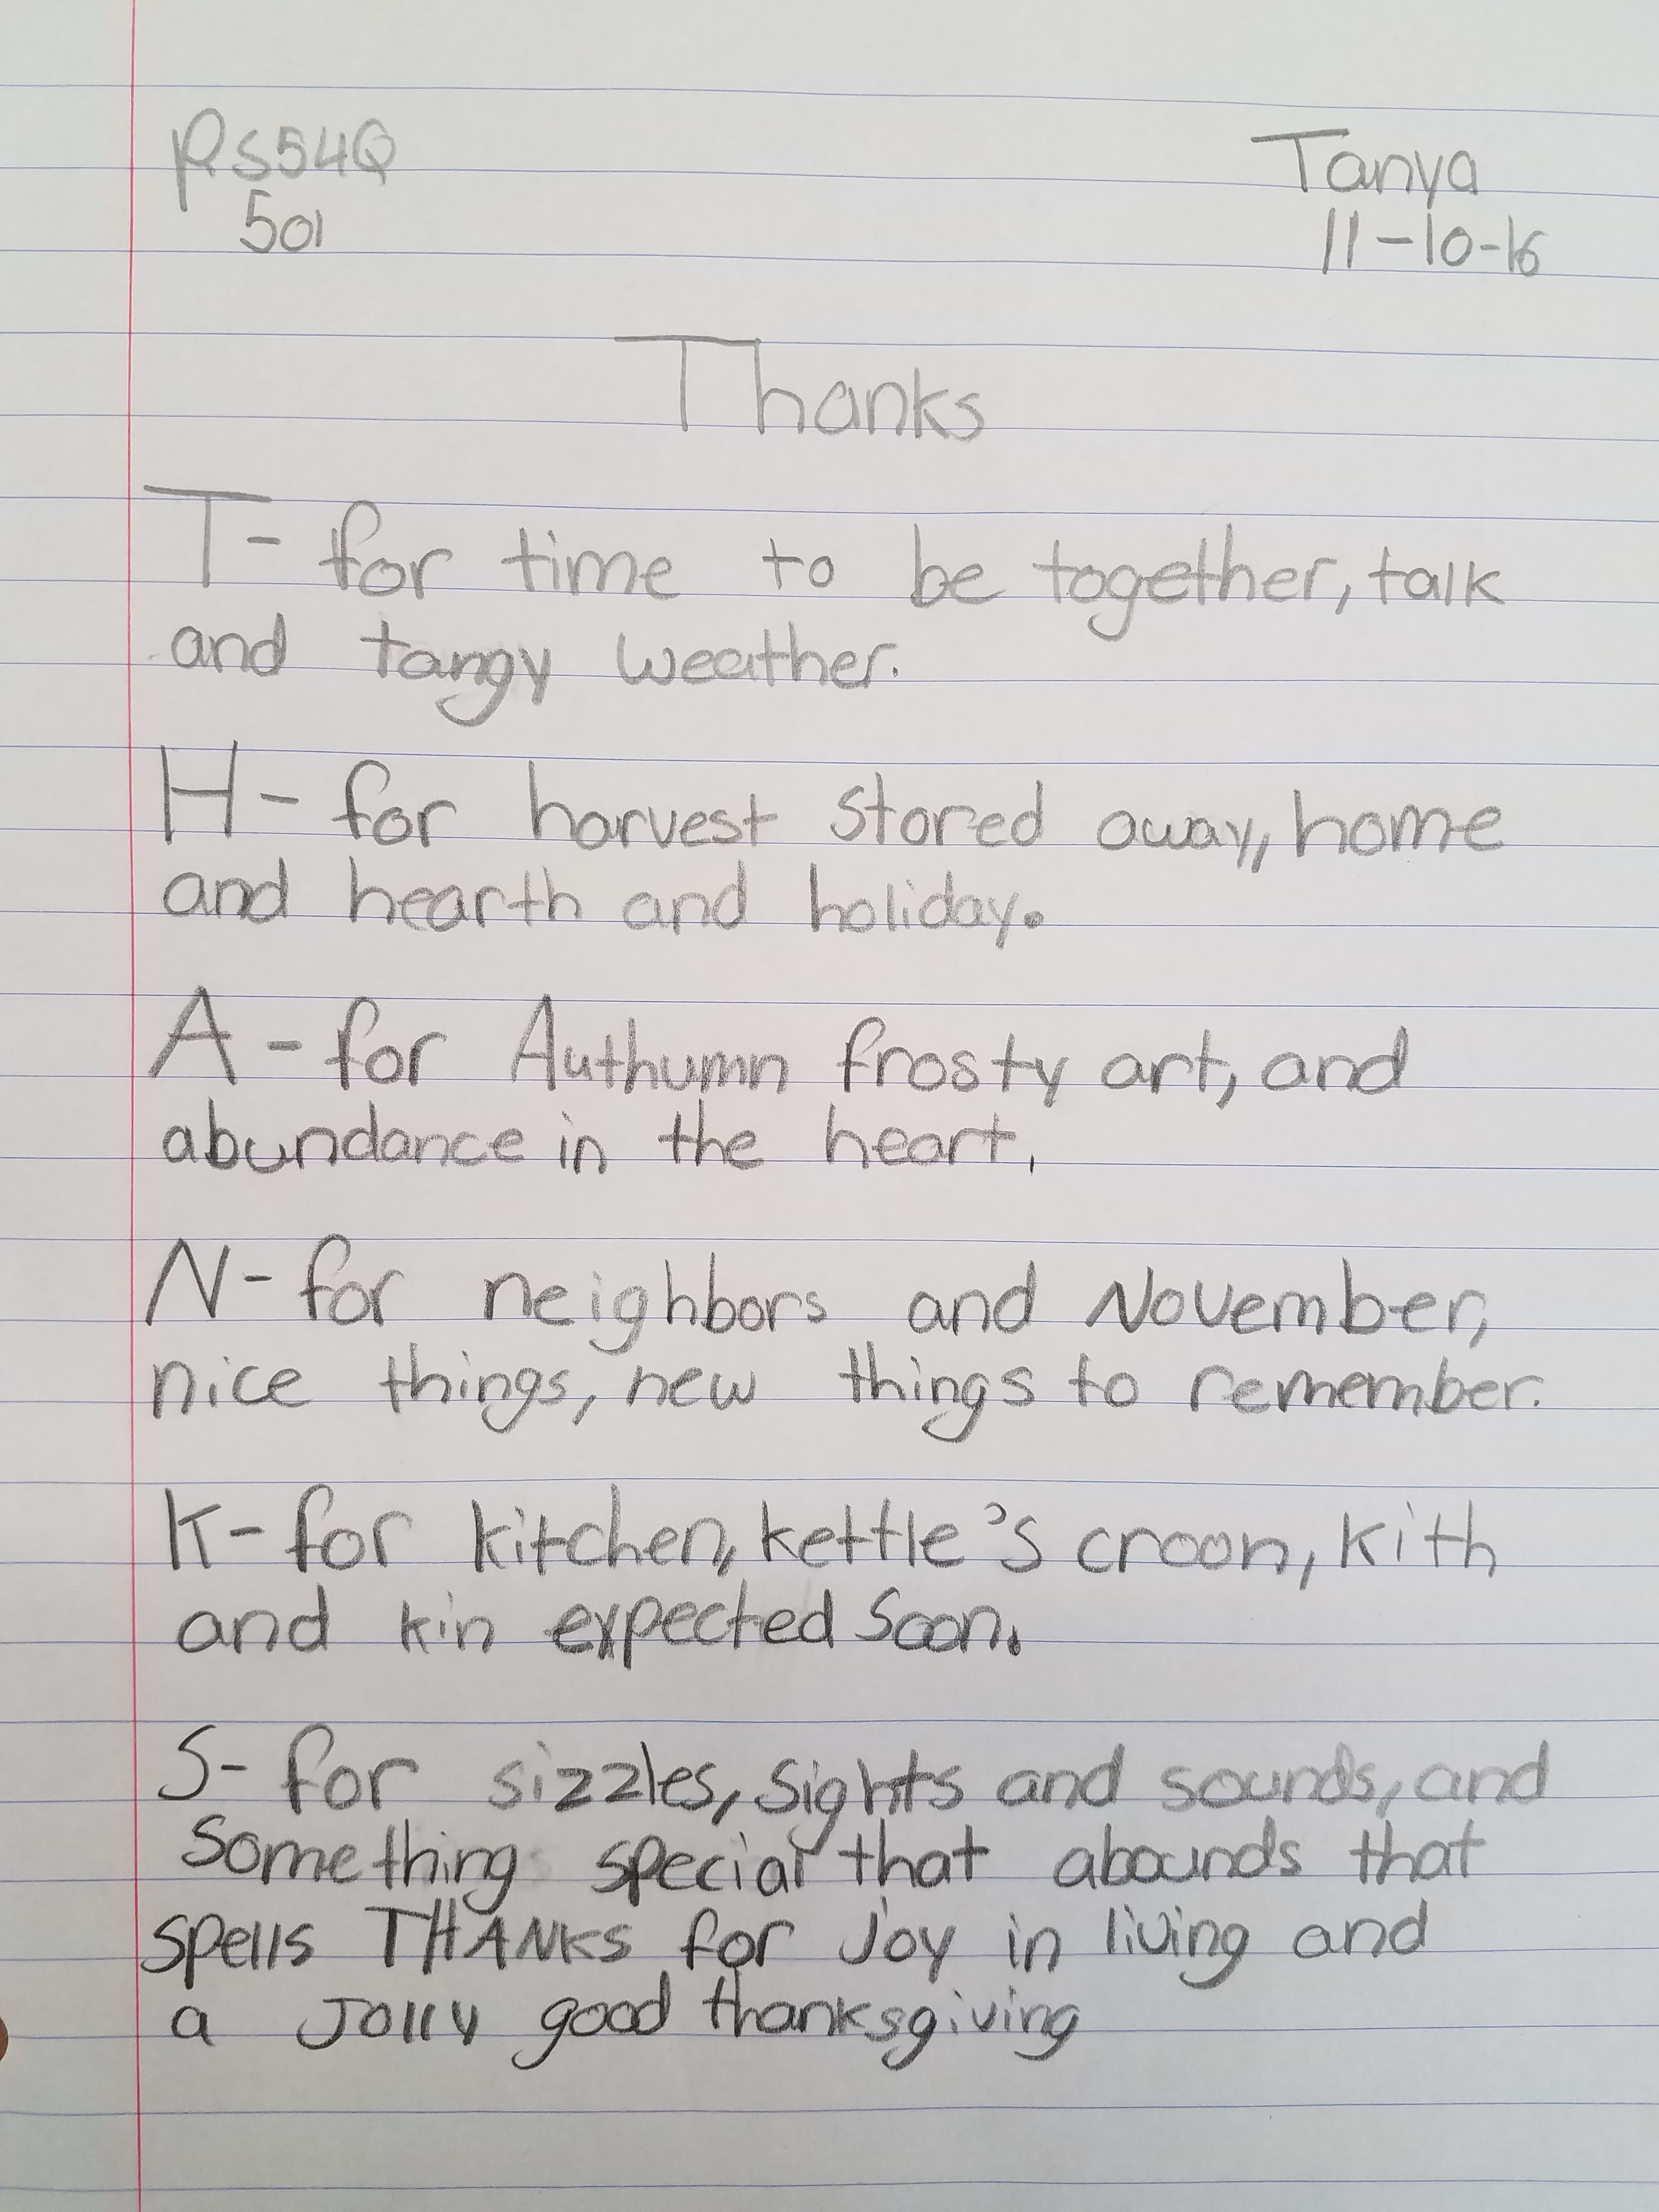 PS54Q
Tanya
501
11-10-16
Thanks
T- for time to be together, talk
and tangy weather.
H- for harvest stored away, home
and hearth and holiday.
A - for Authumn frosty art, and
abundance in the heart.
N- for neighbors and November,
nice things, new things to remember.
K- for kitchen, kettle's croon, kith
and kin expected Soon.
S- for sizzles, sights and sounds, and
Something special that abounds that
spells THANKS for Joy in living and
a Jolly good thanksgiving